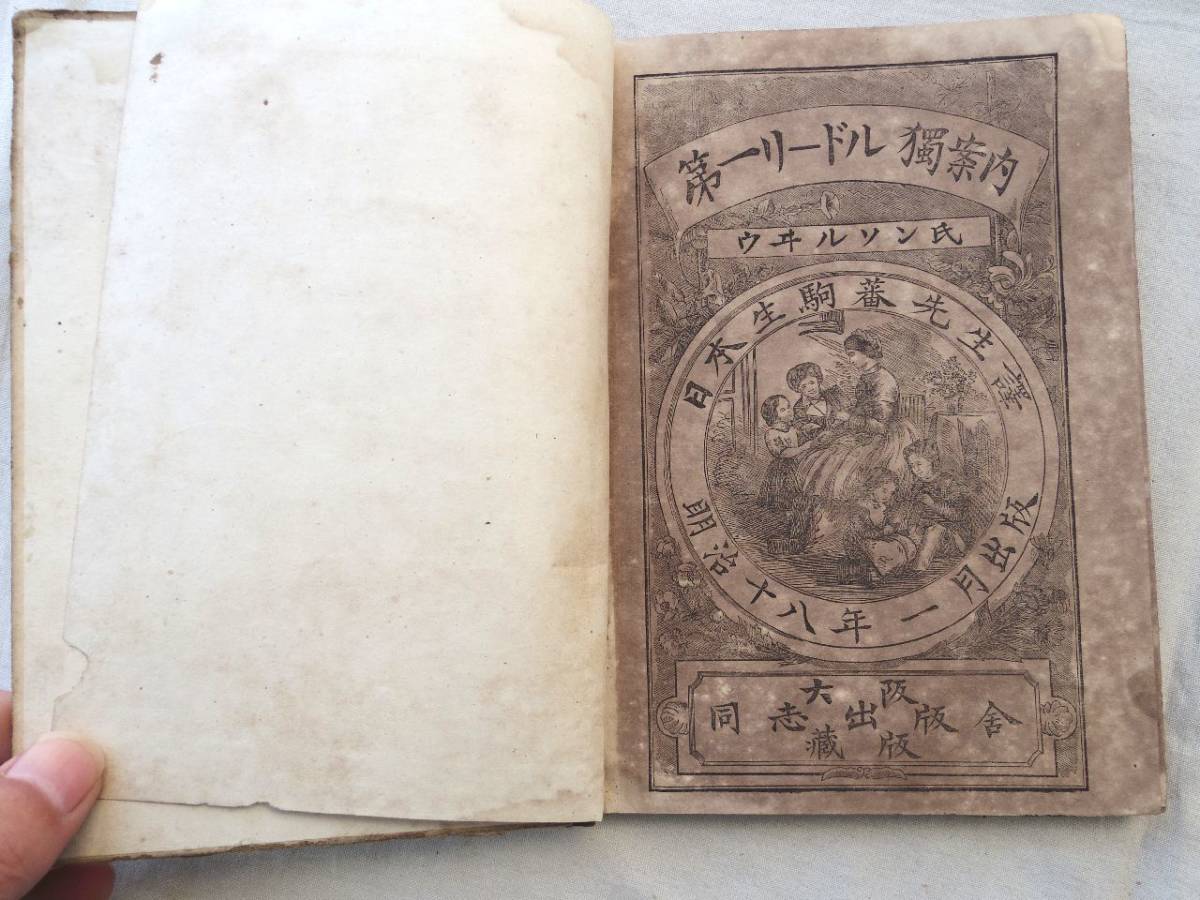 第一リードル獨案内
ウヰルソン氏
日本生駒蕃先生譯
明治十八年一月出版
大阪
同志出版舎
藏版